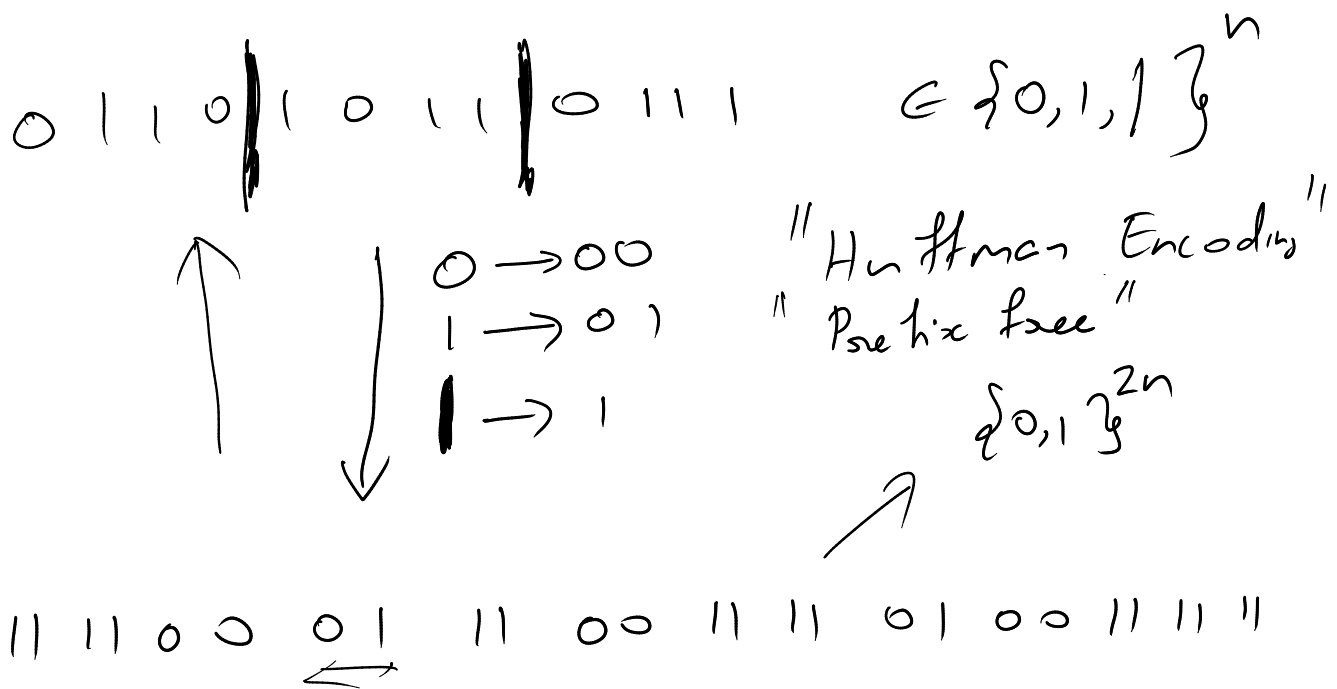 0 1 1 0 | 1 0 1 1 | 0 1 1 1 ∈ {0, 1, |}^n
0 → 00
1 → 01
| → 1
"Huffman Encoding"
"Prefix free"
{0,1}^2n
11 11 00 01 11 00 11 11 01 00 11 11 11